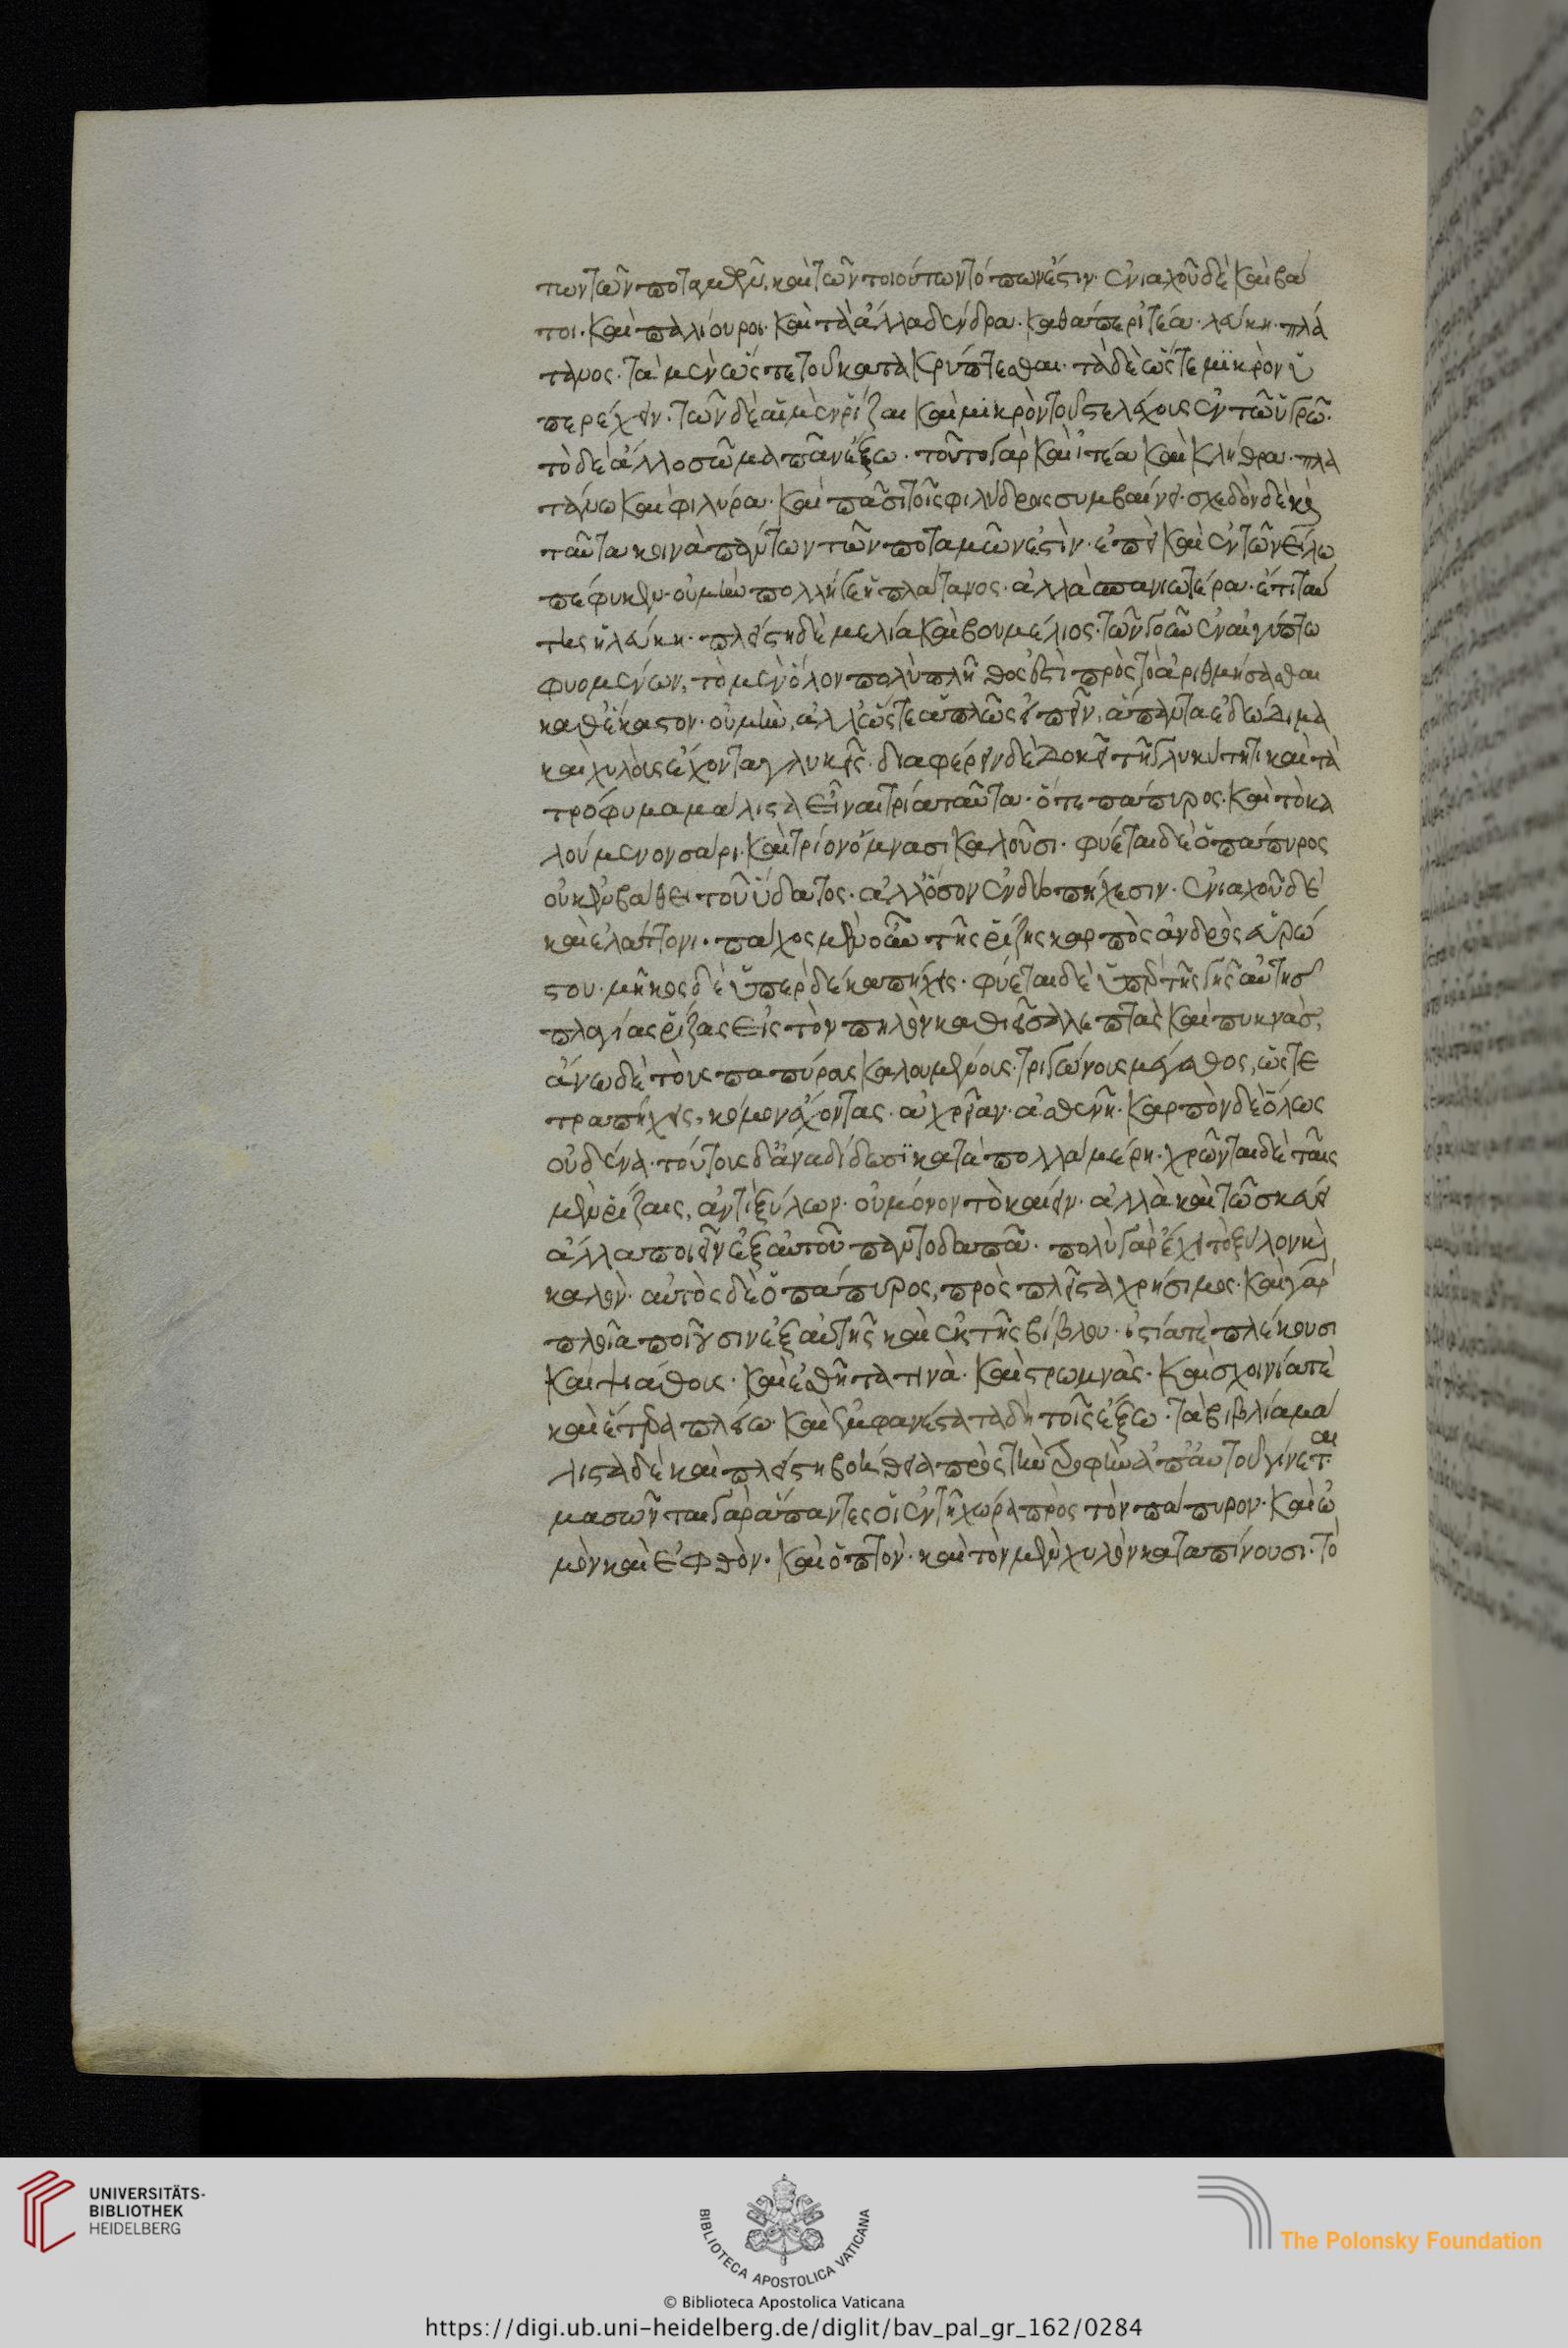 των τῶν ποταμίων, καὶ τῶν τοιούτων τόπων ἐστιν· ἐνιαχοῦ δὲ καὶ βά
τοι· καὶ παλίουροι· καὶ τὰ ἄλλα δένδρα· καθάπερ ἰτέα· λεύκη· πλά
τανος· τὰ μὲν ὥστε τοῦ κατακρύπτεσθαι· τὰ δὲ ὥστε μικρὸν ὑ
περέχειν· τῶν δὲ αἱ μὲν ῥίζαι καὶ μικρὸν τοῦ στελέχους ἐν τῶ ὑγρῶ·
τὸ δὲ ἄλλο σῶμα πᾶν ἔξω· τοῦτο γὰρ καὶ ἰτέα καὶ κλήθρα· πλα
τάνω καὶ φιλύρα· καὶ πᾶσι τοῖς φιλύδροις συμβαίνει· σχεδὸν δὲ καὶ
ταῦτα κοινὰ πάντων τῶν ποταμῶν ἐστὶν· ἐπεὶ καὶ ἐν τῶ νείλω
πέφυκεν· οὐ μὴν πολλή γε ἡ πλάτανος· ἀλλὰ σπανιωτέρα· ἔτι ταύ
της ἡ λεύκη· πλείστη δὲ μελία καὶ βουμέλιος· τῶν γοῦν ἐν αἰγύπτω
φυομένων, τὸ μὲν ὅλον πολὺ πλῆθος ἐστὶ πρὸς τὸ ἀριθμήσασθαι
καθ' ἕκαστον· οὐ μὴν, ἀλλ' ὥστε ἁπλῶς εἰπεῖν, ἅπαντα ἐδώδιμα
καὶ χυλοὺς ἔχοντα γλυκεῖς· διαφέρειν δὲ δοκεῖ τῆ γλυκύτητι καὶ τὰ
τρόφυμα μάλιστα εἶναι τρία ταῦτα· ὅτε πάπυρος· καὶ τὸ κα
λούμενον σάρι· καὶ τρίον ὃ μνασι καλοῦσι· φύεται δὲ ὁ πάπυρος
οὐκ ἐν βάθει τοῦ ὕδατος· ἀλλ' ὅσον ἐν δύο πήχεσιν· ἐνιαχοῦ δὲ
καὶ ἐλάττονι· πάχος μὲν οὖν τῆς ῥίζης καρπὸς ἀνδρὸς εὐρώ
στου· μῆκος δὲ ὑπὲρ δέκα πήχεις· φύεται δὲ ὑπὲρ τῆς γῆς αὐτῆς
πλαγίας ῥίζας εἰς τὸν πηλὸν καθιεῖσα λεπτὰς καὶ πυκνὰς,
ἄνω δὲ τοὺς παπύρους καλουμένους· τριγώνους μέγαθος, ὥς τε
τραπήχεις, κόμον ἔχοντας· ἀχρεῖαν· ἀσθενῆ· καρπὸν δὲ ὅλως
οὐδένα· τούτους δ' ἀναδίδωσϊ κατὰ πολλὰ μέρη· χρῶνται δὲ ταῖς
μὲν ῥίζαις, ἀντὶ ξύλων· οὐ μόνον τὸ καίειν· ἀλλὰ καὶ τῶ σκεύει
ἄλλα ποιεῖν ἐξ αὐτοῦ παντοδαπᾶ· πολὺ γὰρ ἔχει τὸ ξύλον καὶ
καλὸν· αὐτὸς δὲ ὁ πάπυρος, πρὸς πλεῖστα χρήσιμος· καὶ γὰρ
πλοῖα ποιοῦσιν ἐξ αὐτῆς καὶ ἐκ τῆς βίβλου· ἱστία τὲ πλέκουσι
καὶ ψιάθους· καὶ ἐσθῆτα τινὰ· καὶ στρωμνὰς· καὶ σχοινία τὲ
καὶ ἕτερα πλείω· καὶ ἐμφανέστατα δὴ τοῖς ἔξω· τὰ βιβλία μά
λιστα δὲ καὶ πλείστη βοήθεια πρὸς τὴν τροφὴν ἀπ' αὐτοῦ γίνεται
μασῶνται γὰρ ἅπαντες οἱ ἐν τῆ χώρα πρὸς τὸν πάπυρον· καὶ ὠ
μὸν καὶ ἐφθὸν· καὶ ὀπτὸν· καὶ τὸν μὲν χυλὸν καταπίνουσι· τὸ
UNIVERSITÄTS-
BIBLIOTHEK
HEIDELBERG
BIBLIOTECA APOSTOLICA VATICANA
The Polonsky Foundation
© Biblioteca Apostolica Vaticana
https://digi.ub.uni-heidelberg.de/diglit/bav_pal_gr_162/0284